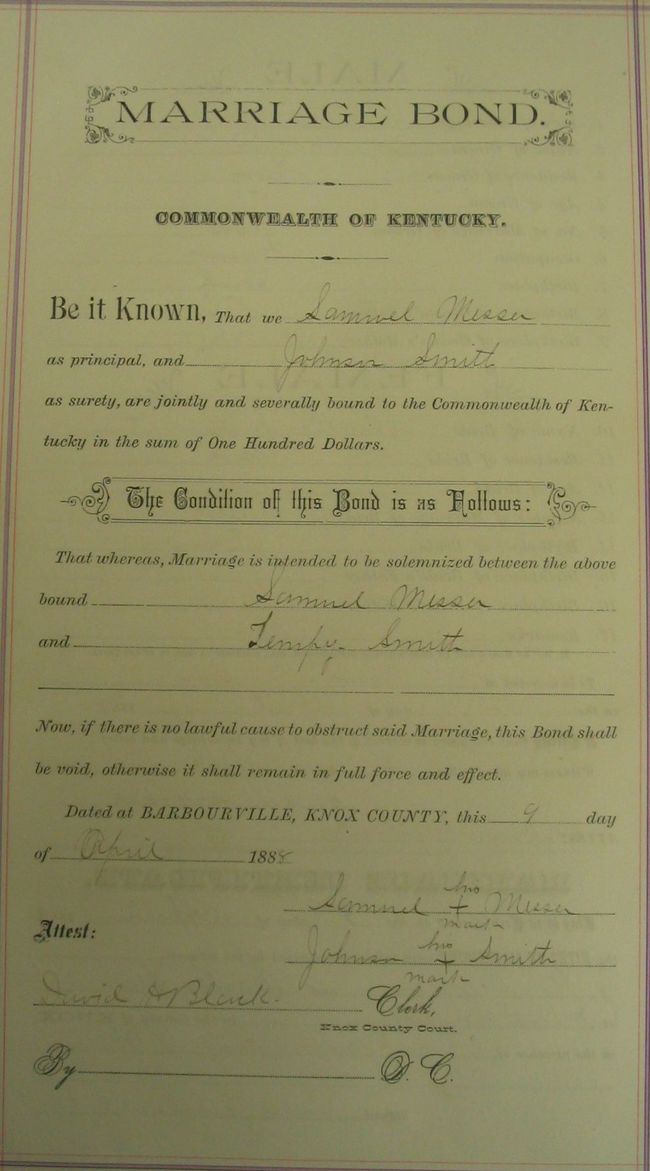 MARRIAGE BOND.
COMMONWEALTH OF KENTUCKY.
Be it Known, That we Samuel Messer
as principal, and Johnson Smith
as surety, are jointly and severally bound to the Commonwealth of Ken-
tucky in the sum of One Hundred Dollars.
The Condition of this Bond is as Follows:
That whereas, Marriage is intended to be solemnized between the above
bound Samuel Messer
and Tempy Smith
Now, if there is no lawful cause to obstruct said Marriage, this Bond shall
be void, otherwise it shall remain in full force and effect.
Dated at BARBOURVILLE, KNOX COUNTY, this 9 day
of April 1888
his
Samuel + Messer
mark
Attest:
his
Johnson + Smith
mark
David Black. Clerk,
Knox County Court.
By D. C.